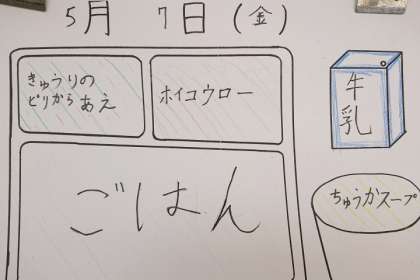 5月 7日(金)
きゅうりの
ピリから あえ
ホイコウロー
牛乳
ごはん
ちゅうかスープ